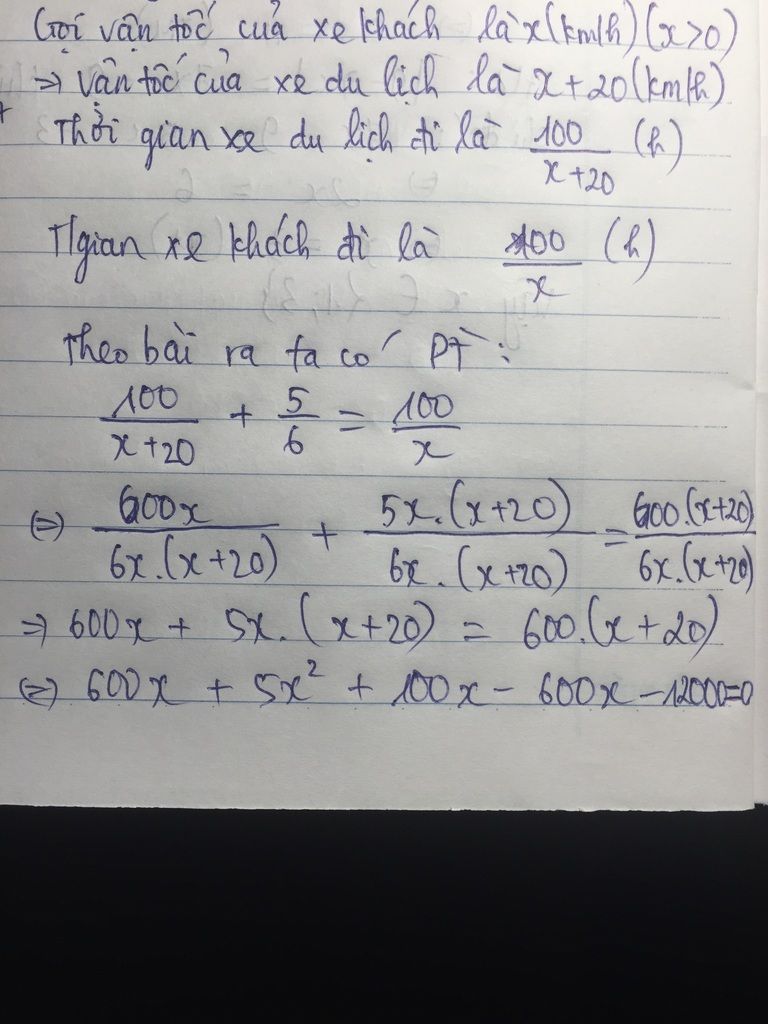 Gọi vận tốc của xe khách là x(km/h) (x>0)
=> vận tốc của xe du lịch là x+20(km/h)
Thời gian xe du lịch đi là 100/(x+20) (h)
T/gian xe khách đi là 100/x (h)
Theo bài ra ta có PT:
100/(x+20) + 5/6 = 100/x
(=) 600x/(6x.(x+20)) + 5x.(x+20)/(6x.(x+20)) = 600.(x+20)/(6x.(x+20))
=> 600x + 5x.(x+20) = 600.(x+20)
(=) 600x + 5x² + 100x - 600x - 12000=0